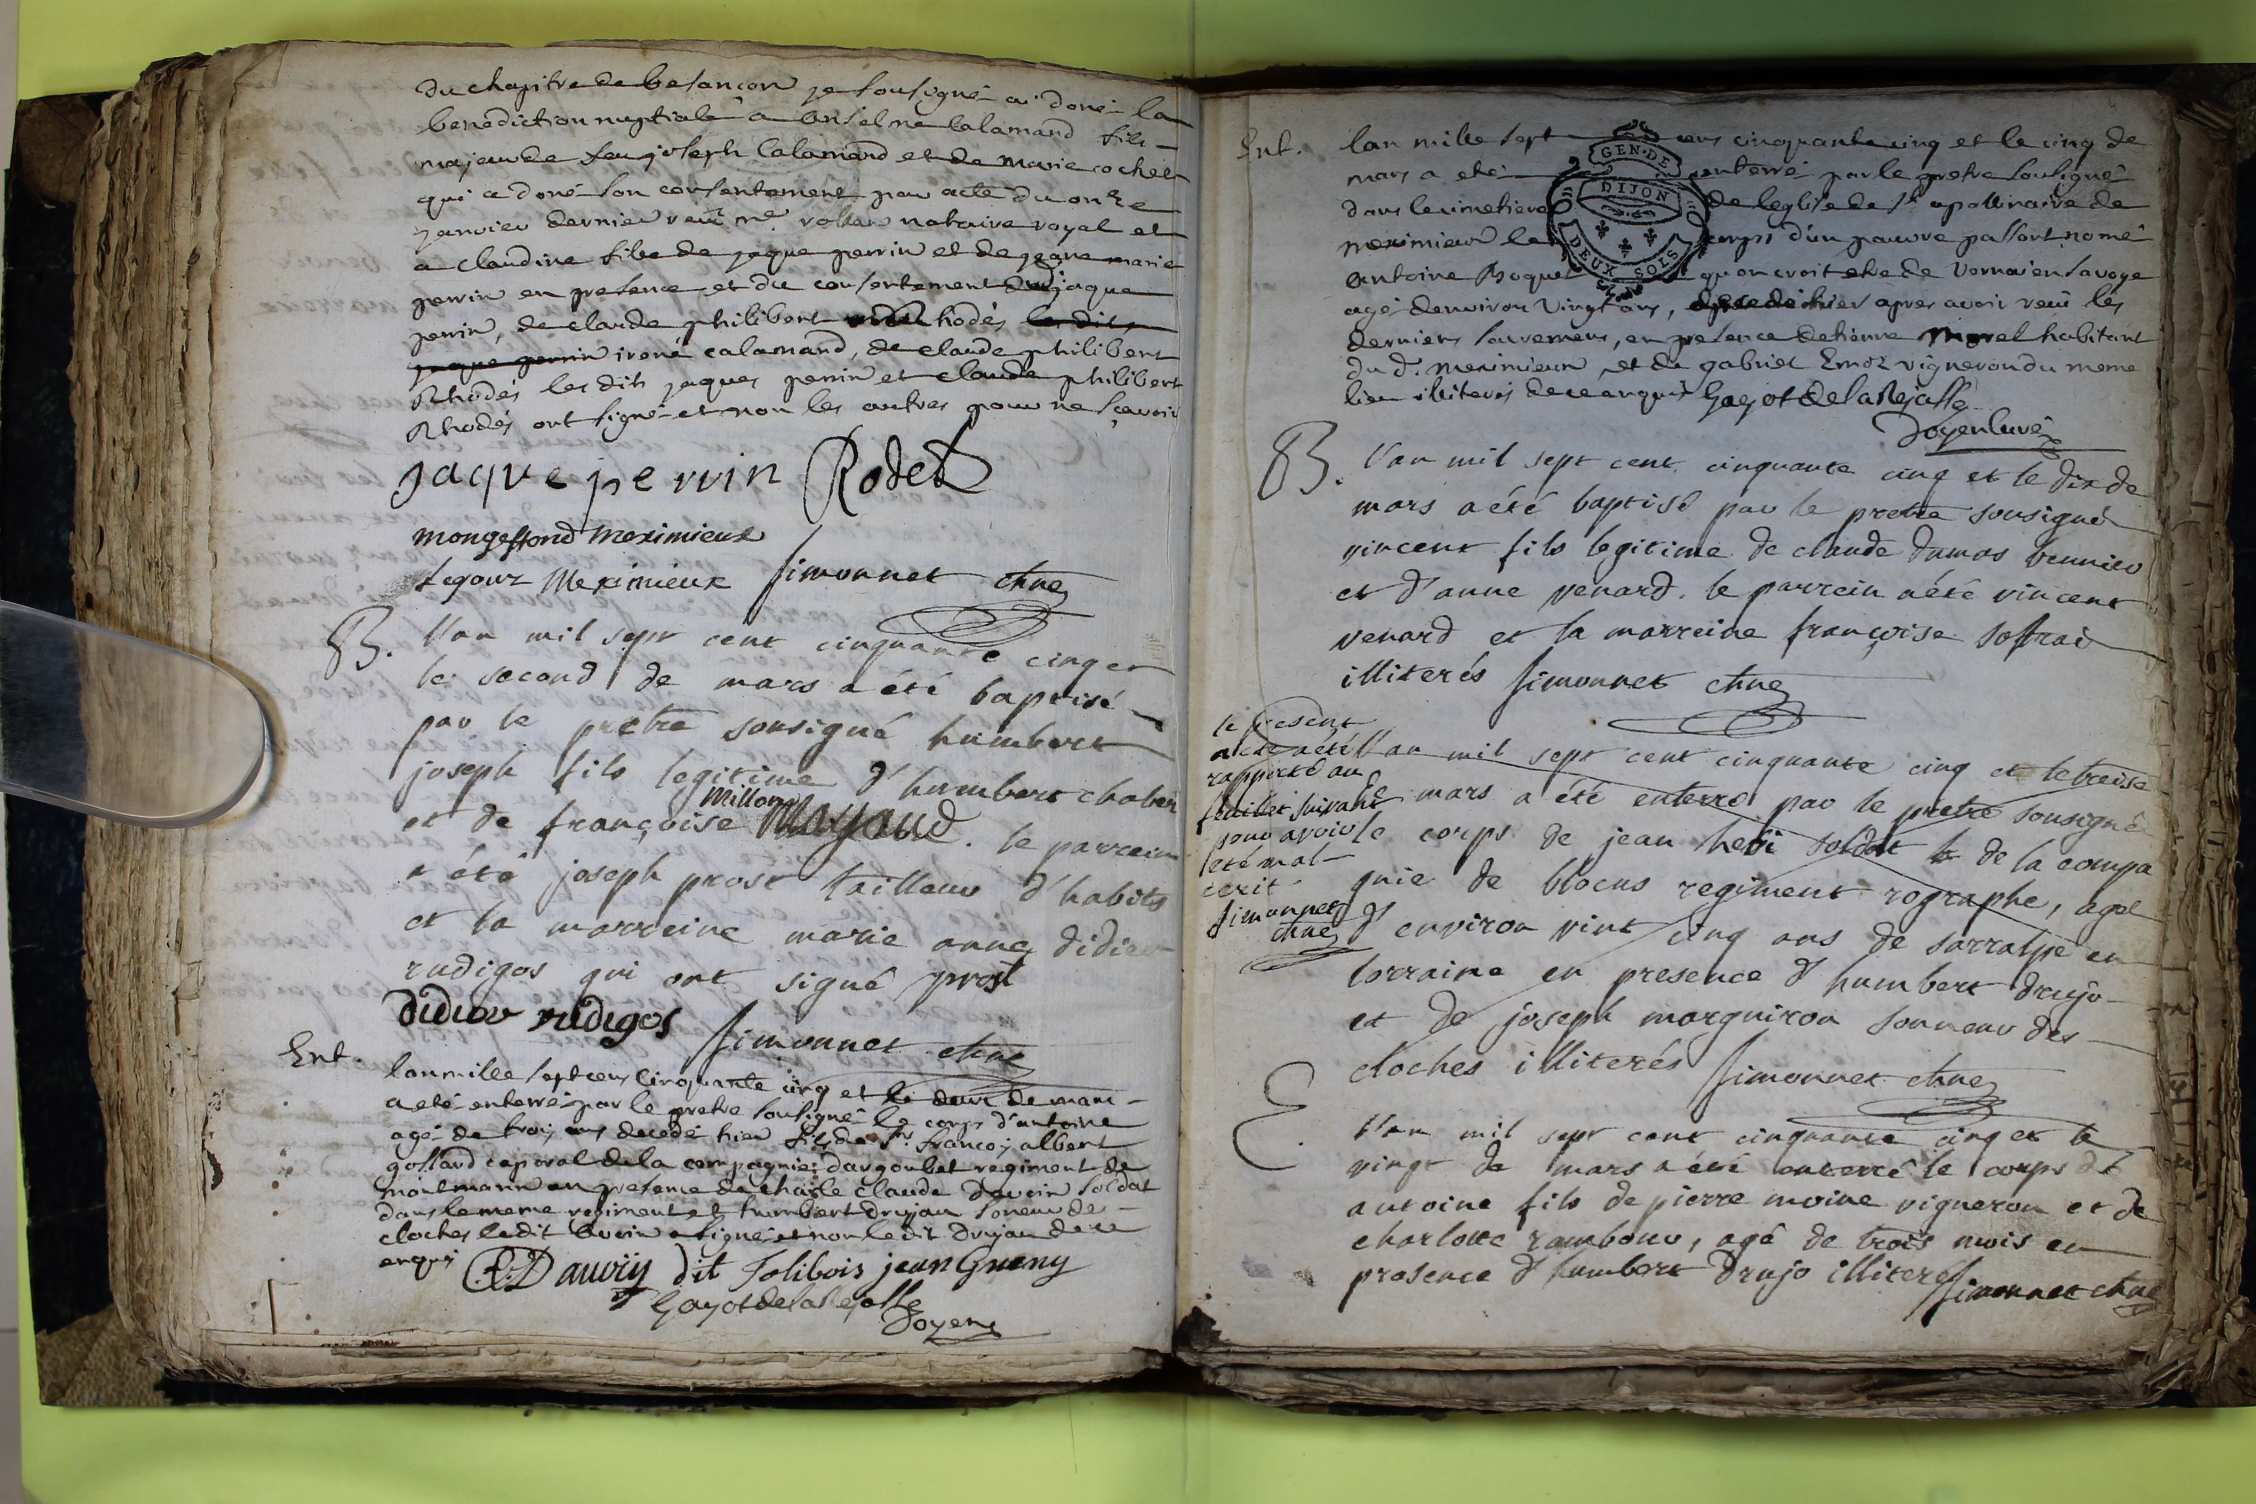 du chapitre de besancon je sousigné ai doné la
benediction nuptiale a anselme Calamand fils
majeur de feu joseph Calamand et de marie cochet
qui a doné son consentement par acte du onze
janvier dernier reçu me. notaire royal et
a claudine fille de jaque perrin et de jeane marie
perrin en presence et du consentement dud jaque
perrin, de claude philibert Rhodés les dits
jaque perrin irené calamand, de claude philibert
Rhodés les dits jaques perrin et claude philibert
Rhodés ont signé et non les autres pour ne sçavoir
jaque perrin Rodet
mongeffond meximieux
Legour Meximieux Simonnet chne
B. l'an mil sept cent cinquante cinq et
le second de mars a été baptisé
par le pretre sousigné humbert
joseph fils legitime d'humbert chaber
millon
et de françoise Mayaud. le parrein
a été joseph prost tailleur d'habits
et la marreine marie anne didier
rudigos qui ont signé prost
didier rudigos Simonnet chne
Ent. lan mille sept cens Cinquante cinq et le deux de mars
a eté enterré par le pretre sousigné le corps d'antoine
agé de trois ans decedé hier fils de Sr. francois albert
gossard caporal de la compagnie dargoubet regiment de
montmorin en presence de charle claude Davoin soldat
dans le meme regiment et humbert drujau soneur de
cloches ledit avoin a signé et non le dit drujau de ce
enquis
Dauvin dit Jolibois jean Grueny
Gayot de la Rejasse
Doyen
Ent. lan mille sept cens cinquante cinq et le cinq de
mars a eté enterré par le pretre sousigné
dans le cimetiere de leglise de St apollinaire de
meximieux le corps d'un pauvre passant nomé
antoine Boquet qu'on croit etre de Vornai en savoye
agé denviron Vingt ans, decedé hier apres avoir reçu les
derniers sacremens, en presence detienne morel habitant
du d. meximieux et de gabriel Emoz vigneron du meme
lieu illiterés de ce enquis Gayot de la Rejasse
Doyen Curé
GEN. DE
DIJON
DEUX SOLS
B. l'an mil sept cent cinquante cinq et le dix de
mars a été baptisé par le pretre sousigné
vincent fils legitime de claude dumas
et d'anne venard. le parrein a été vincent
venard et la marreine françoise soffrai
illiterés Simonnet chne
le présent
acte a été
rapporté au
feuillet suivant
pour avoir
été mal
écrit
Simonnet
chne
l'an mil sept cent cinquante cinq et le treise
de mars a été enterré par le pretre sousigné
le corps de jean hebi soldat de la compa
gnie de blocus regiment rographe, agé
d'environ vint cinq ans de sarralpe en
lorraine en presence d'humbert drujo
et de joseph marguiron sonneur des
cloches illiterés Simonnet chne
E. l'an mil sept cent cinquante cinq et le
vingt de mars a été enterré le corps d'
antoine fils de pierre moine vigneron et de
charlotte rambour, agé de trois mois en
presence d'humbert drujo illiteré Simonnet chne